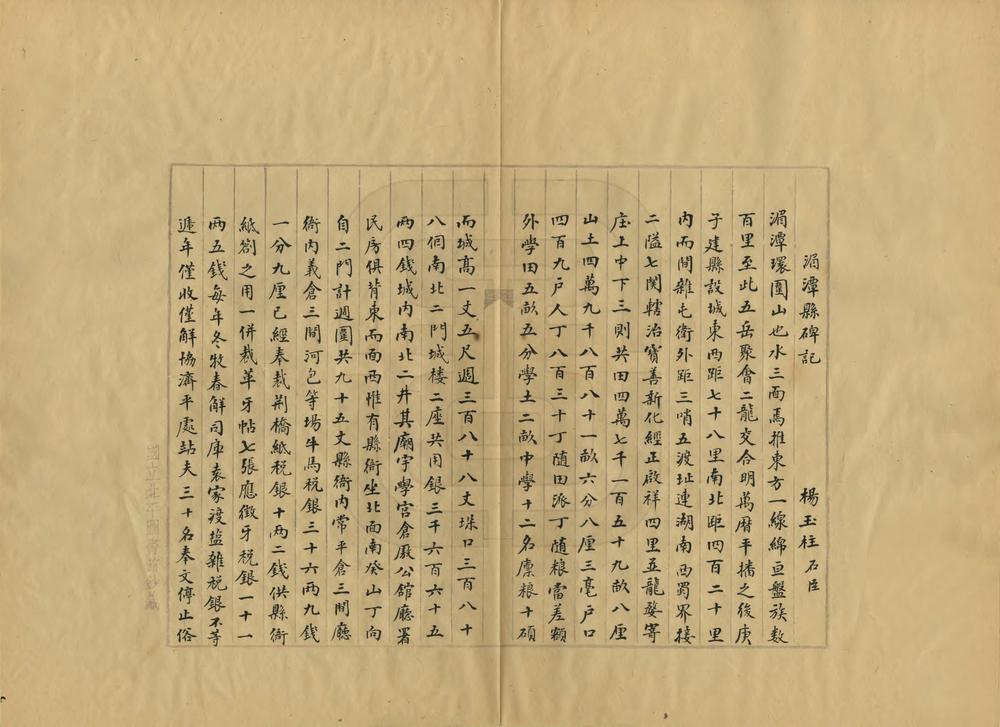 湄潭縣碑記　楊玉柱石臣
湄潭環圍山也水三面焉推東方一線綿亘盤旋數
百里至此五岳聚會二龍交合明萬曆平播之後庚
子建縣設城東西距七十八里南北距四百二十里
内而間雜屯衛外距三哨五渡址連湖南西蜀界接
二隘七関轄治寶善新化經正啟祥四里五龍婺寄
庄上中下三則共田四萬七千一百五十九畝八厘
山土四萬九千八百八十一畝六分八厘三毫戸口
四百九戸人丁八百三十丁随田派丁随粮當差額
外學田五畝五分學土二畝中學十二名廪粮十碩
而城高一丈五尺週三百八十八丈垛口三百八十
八個南北二門城楼二座共用銀三千六百六十五
两四錢城内南北二井其廟宇學宮倉廒公館廳署
民房俱背東而面西惟有縣衙坐北面南癸山丁向
自二門計週圍共九十五丈縣衙内常平倉三間廳
衙内義倉三間河包等場牛馬税銀三十六两九錢
一分九厘已經奉裁荆橋紙税銀十两二錢供縣衙
紙劄之用一併裁革牙帖七張應徵牙税銀一十一
两五錢每年冬牧春解司庫袁家渡塩雜税銀不等
遞年僅收僅解協濟平處站夫三十名奉文停止俗
國立北平圖書館